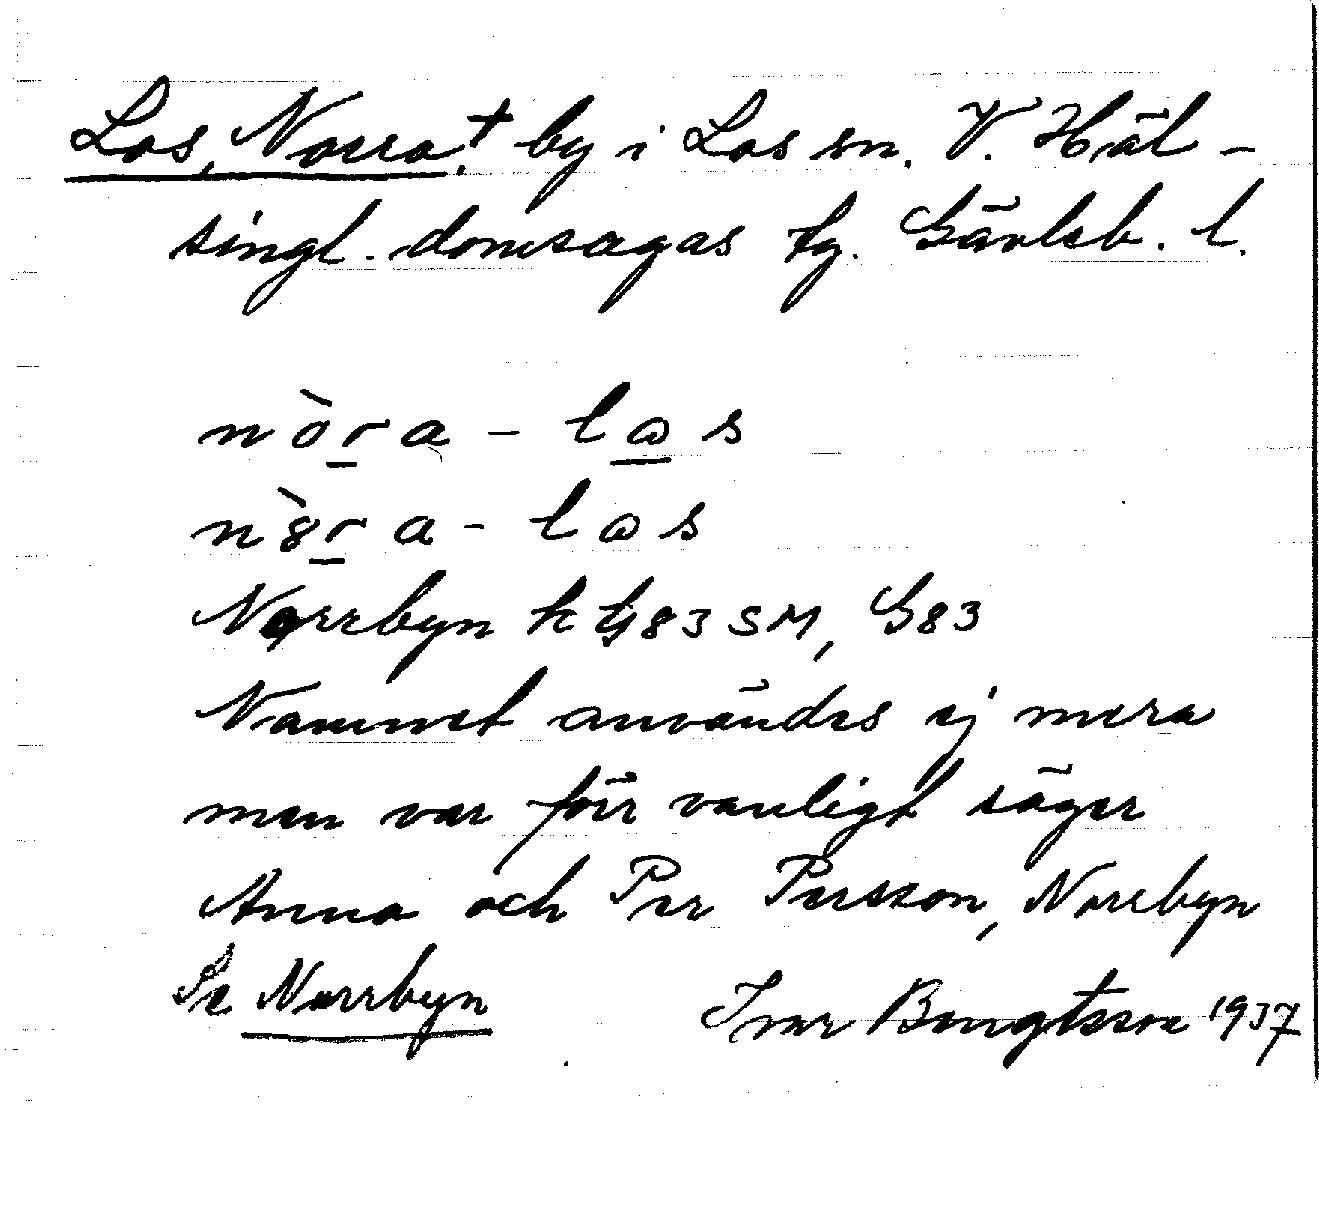 Los, Norra.† by i Los sn. V. Häl-
singl. domsagas tg. Gävleb. l.
nòra - lɷs
nȣ̀ra - lɷs
Norrbyn k tg 83 SM, G83
Namnet användes ej mera
men var förr vanligt säger
Anna och Per Persson, Norrbyn
Se Norrbyn
Ivar Bengtsson 1937